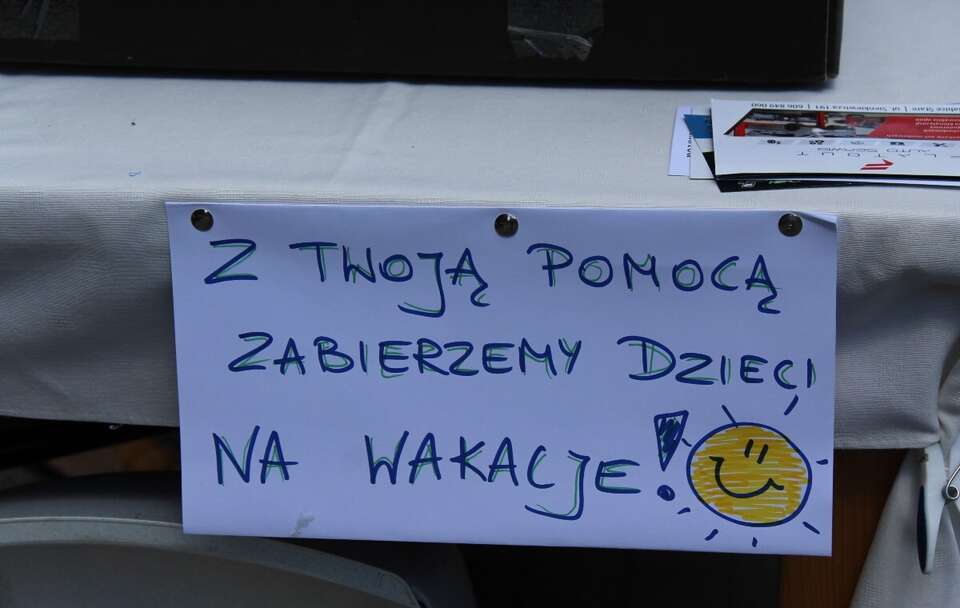 Z TWOJĄ POMOCĄ
ZABIERZEMY DZIECI
NA WAKACJE!